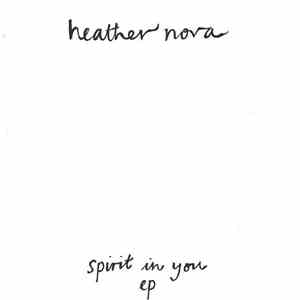 heather nova
spirit in you
ep